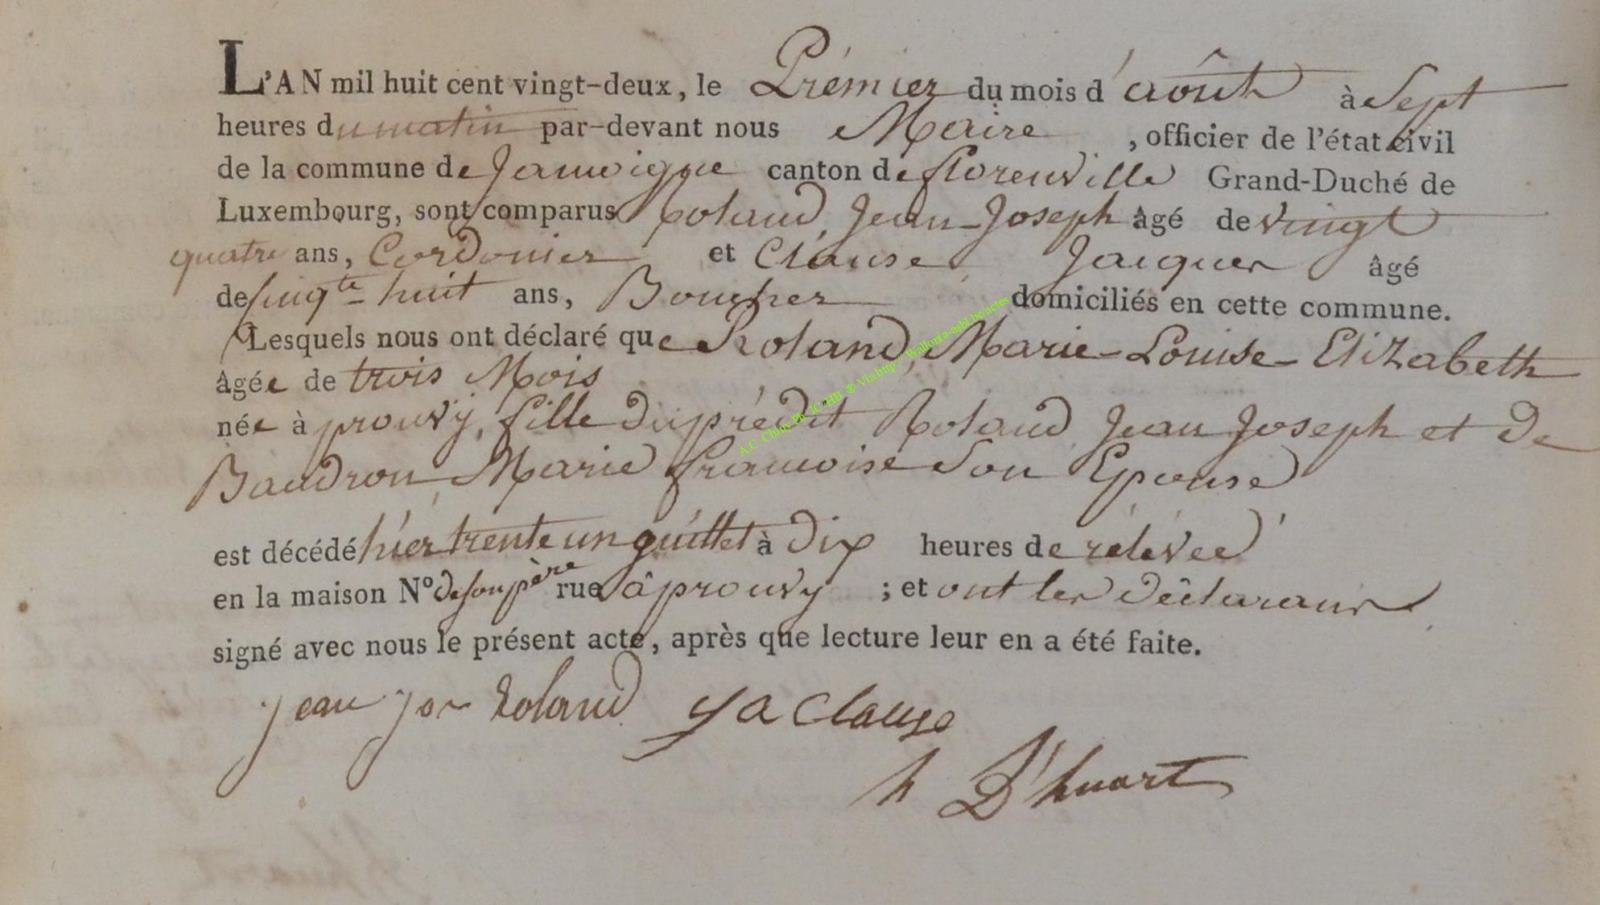 L'AN mil huit cent vingt-deux, le Prémier du mois d'août à Sept
heures du matin par-devant nous Maire, officier de l'état civil
de la commune de Jamoigne canton de florenville Grand-Duché de
Luxembourg, sont comparus Roland, Jean-Joseph âgé de vingt
quatre ans, Cordonier et Clause Jacques âgé
de vingte huit ans, Boucher domiciliés en cette commune.
Lesquels nous ont déclaré que Roland, Marie-Louise-Elizabeth
âgée de trois Mois
née à prouvy, fille du prédit Roland Jean Joseph et de
Baudron, Marie francoise Son Epouse
est décédé hier trente un juillet à dix heures de rélévée
en la maison N° de son père rue à prouvy ; et ont les déclarans
signé avec nous le présent acte, après que lecture leur en a été faite.
jean jos Roland ja clause
h D'huart